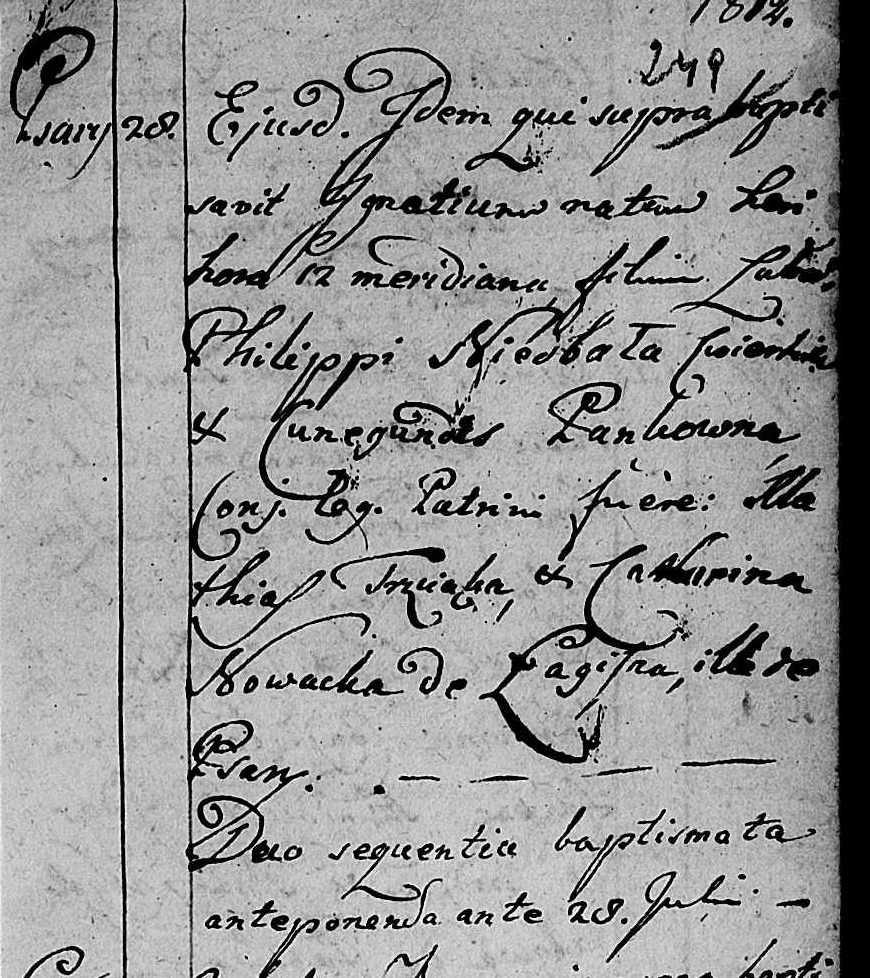 1812.
249
Psary 28. Ejusd. Idem qui supra bapti
savit Ignatium natum heri
hora 12 meridiana, filium Labor.
Philippi Niedbała
& Cunegundis Pankowna
Conj. Leg. Patrini fuère: Ma
thias Trzciąka, & Catharina
Nowacka de Łagisza, ille de
Psary. — — — —
Duo sequentia baptismata
anteponenda ante 28. Julii —